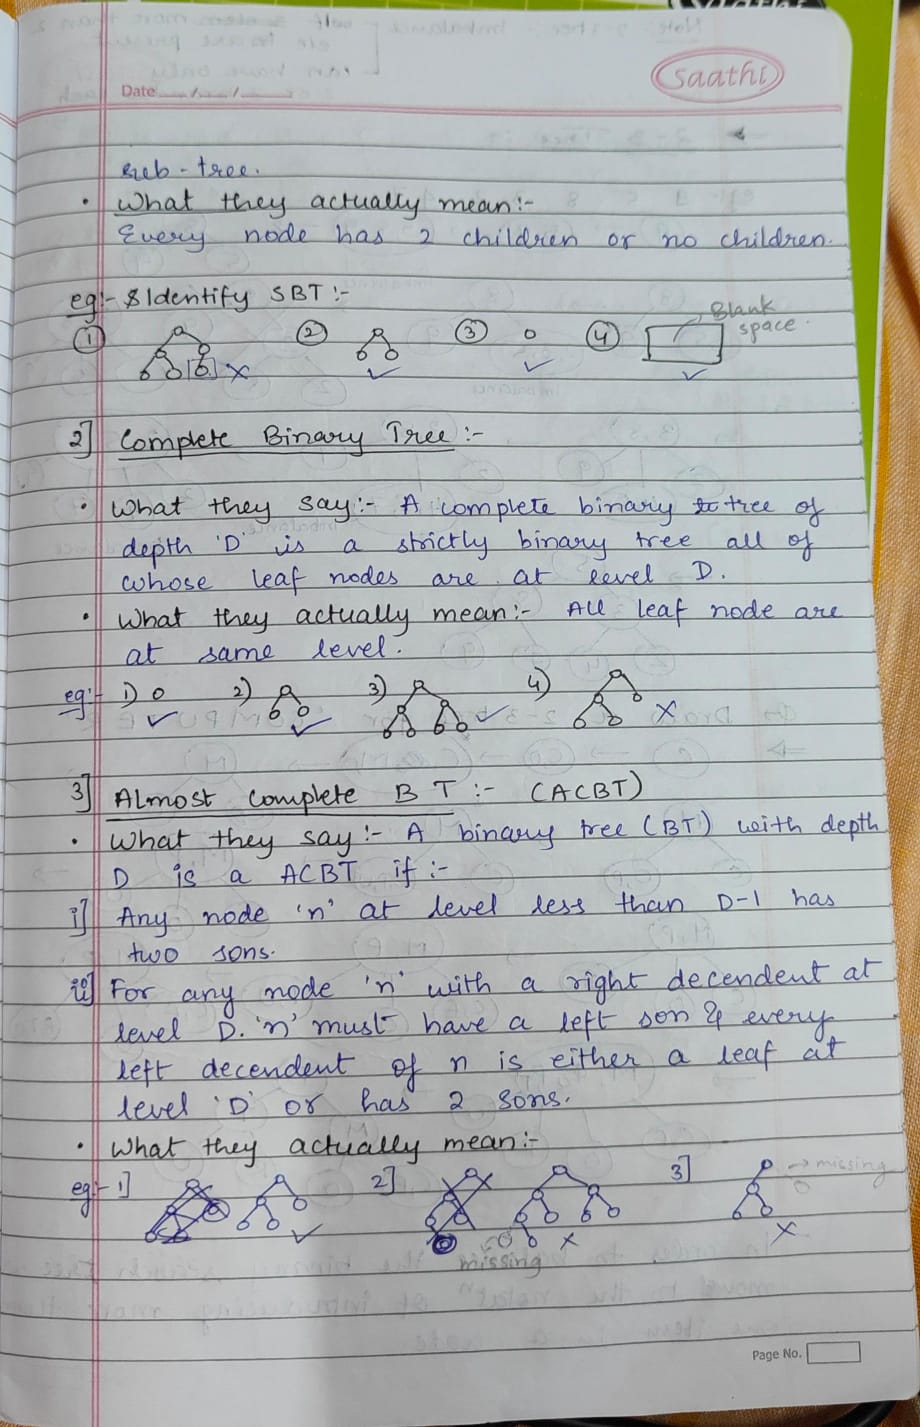 Saathi
Date
sub-tree.
• What they actually mean:-
Every node has 2 children or no children.
eg:- Identify SBT :-
① ② ③ ④ Blank space
2] Complete Binary Tree :-
• What they say:- A complete binary tree of
depth 'D' is a strictly binary tree all of
whose leaf nodes are at level D.
• What they actually mean:- All leaf node are
at same level.
eg:- 1) 2) 3) 4)
3] Almost complete B T :- (ACBT)
• What they say:- A binary tree (BT) with depth
D is a ACBT if :-
i] Any node 'n' at level less than D-1 has
two sons.
ii] For any node 'n' with a right decendent at
level D. 'n' must have a left son & every
left decendent of n is either a leaf at
level 'D' or has 2 sons.
• What they actually mean:-
eg:- 1] 2] 3] → missing
missing
Page No.